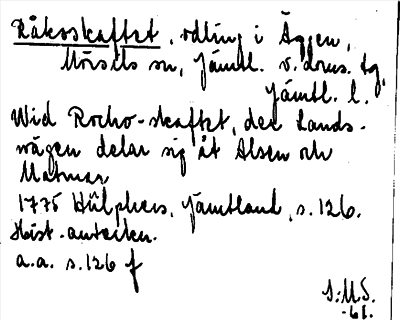 Råkoskaftet, odling i Äggen,
Mörsils sn, Jämtl. v. doms. tg,
Jämtl. l.
Wid Rocko-skaftet, der Lands-
vägen delar sig åt Alsen och
Matmar
1775 Hülphers, Jämtland, s. 126.
Hist. anteckn.
a.a. s. 126 f
S:MS.
-61.